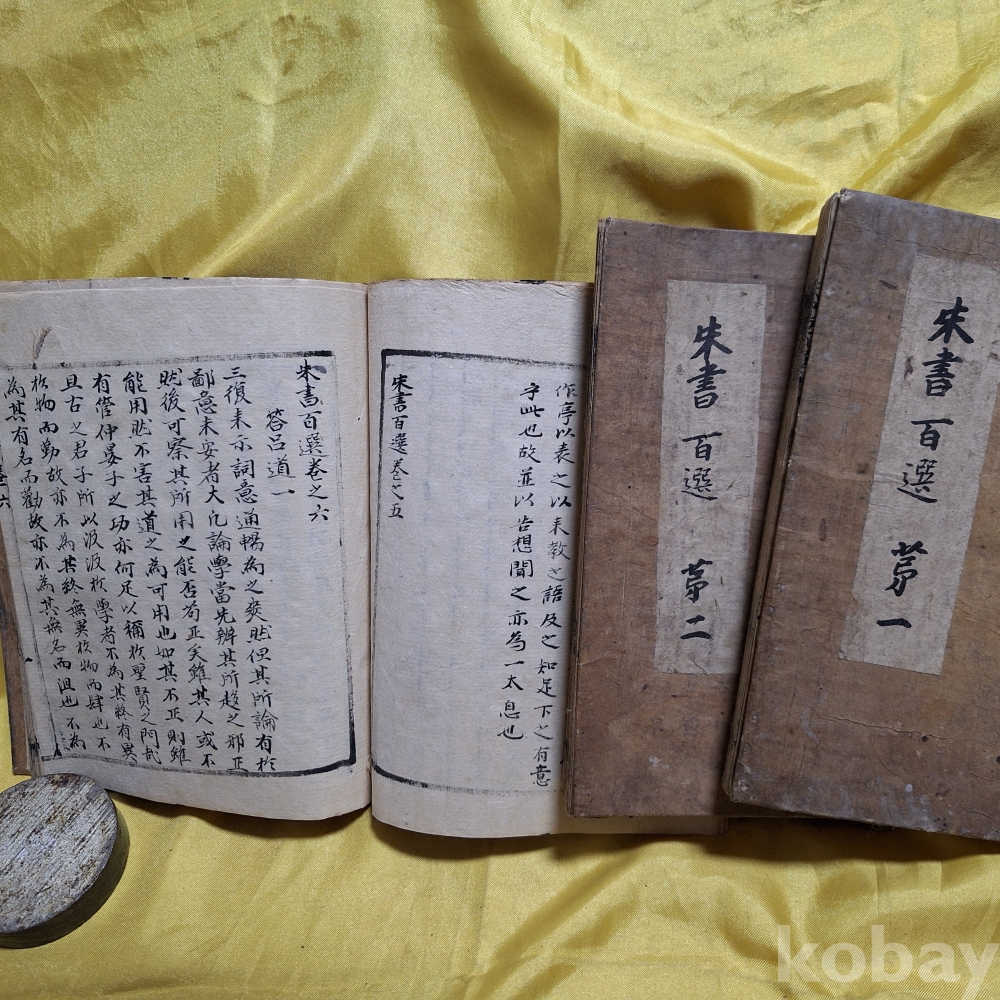 朱書百選 苐一
朱書百選 苐二
作亭以表之以来教之語及之知足下之有意
于此也故並以告想聞之亦為一太息也
朱書百選卷之五
朱書百選卷之六
答呂道一
三復来示詞意通暢為之爽然但其所論有於
鄙意未安者大凡論學當先辨其所趍之邪正
然後可察其所用之能否苟正矣雖其人或不
能用然不害其道之為可用也如其不正則雖
有管仲晏子之功亦何足以稱於聖賢之門哉
且古之君子所以汲汲於學者不為其終有異
於物而勤故亦不為其終無異於物而肆也不
為其有名而勸故亦不為其無名而沮也不為
卷六
kobay